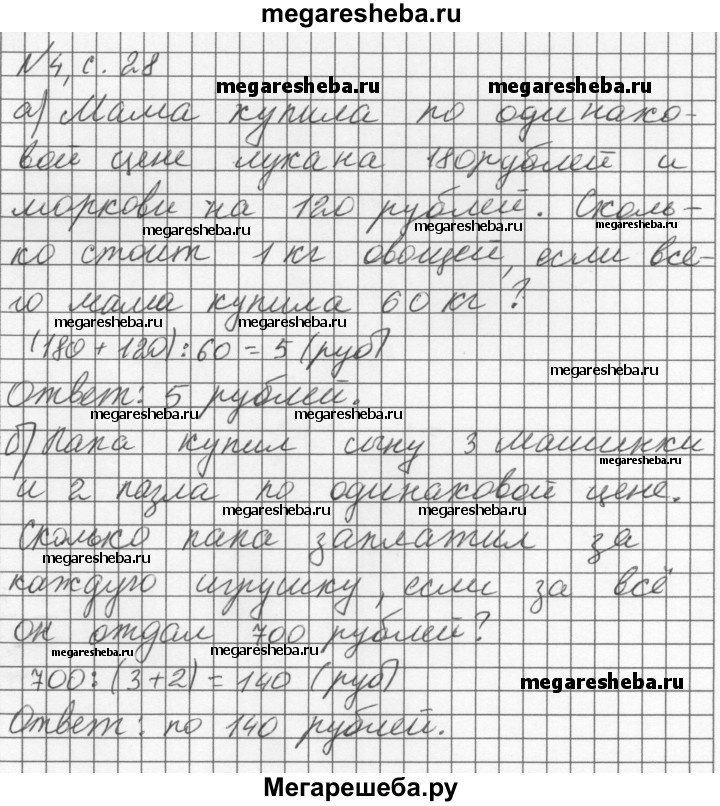 megaresheba.ru
№4, с. 28
megaresheba.ru megaresheba.ru
а) Мама купила по одинако-
вой цене лука на 180 рублей и
моркови на 120 рублей. Сколь-
megaresheba.ru megaresheba.ru megaresheba.ru
ко стоит 1 кг овощей, если все-
го мама купила 60 кг?
megaresheba.ru megaresheba.ru
(180 + 120) : 60 = 5 (руб)
megaresheba.ru
Ответ: 5 рублей.
megaresheba.ru megaresheba.ru
б) Папа купил сыну 3 машинки
megaresheba.ru
и 2 пазла по одинаковой цене.
megaresheba.ru megaresheba.ru
Сколько папа заплатил за
megaresheba.ru
каждую игрушку, если за всё
он отдал 700 рублей?
megaresheba.ru megaresheba.ru
700 : (3 + 2) = 140 (руб)
megaresheba.ru
Ответ: по 140 рублей.
Мегарешеба.ру